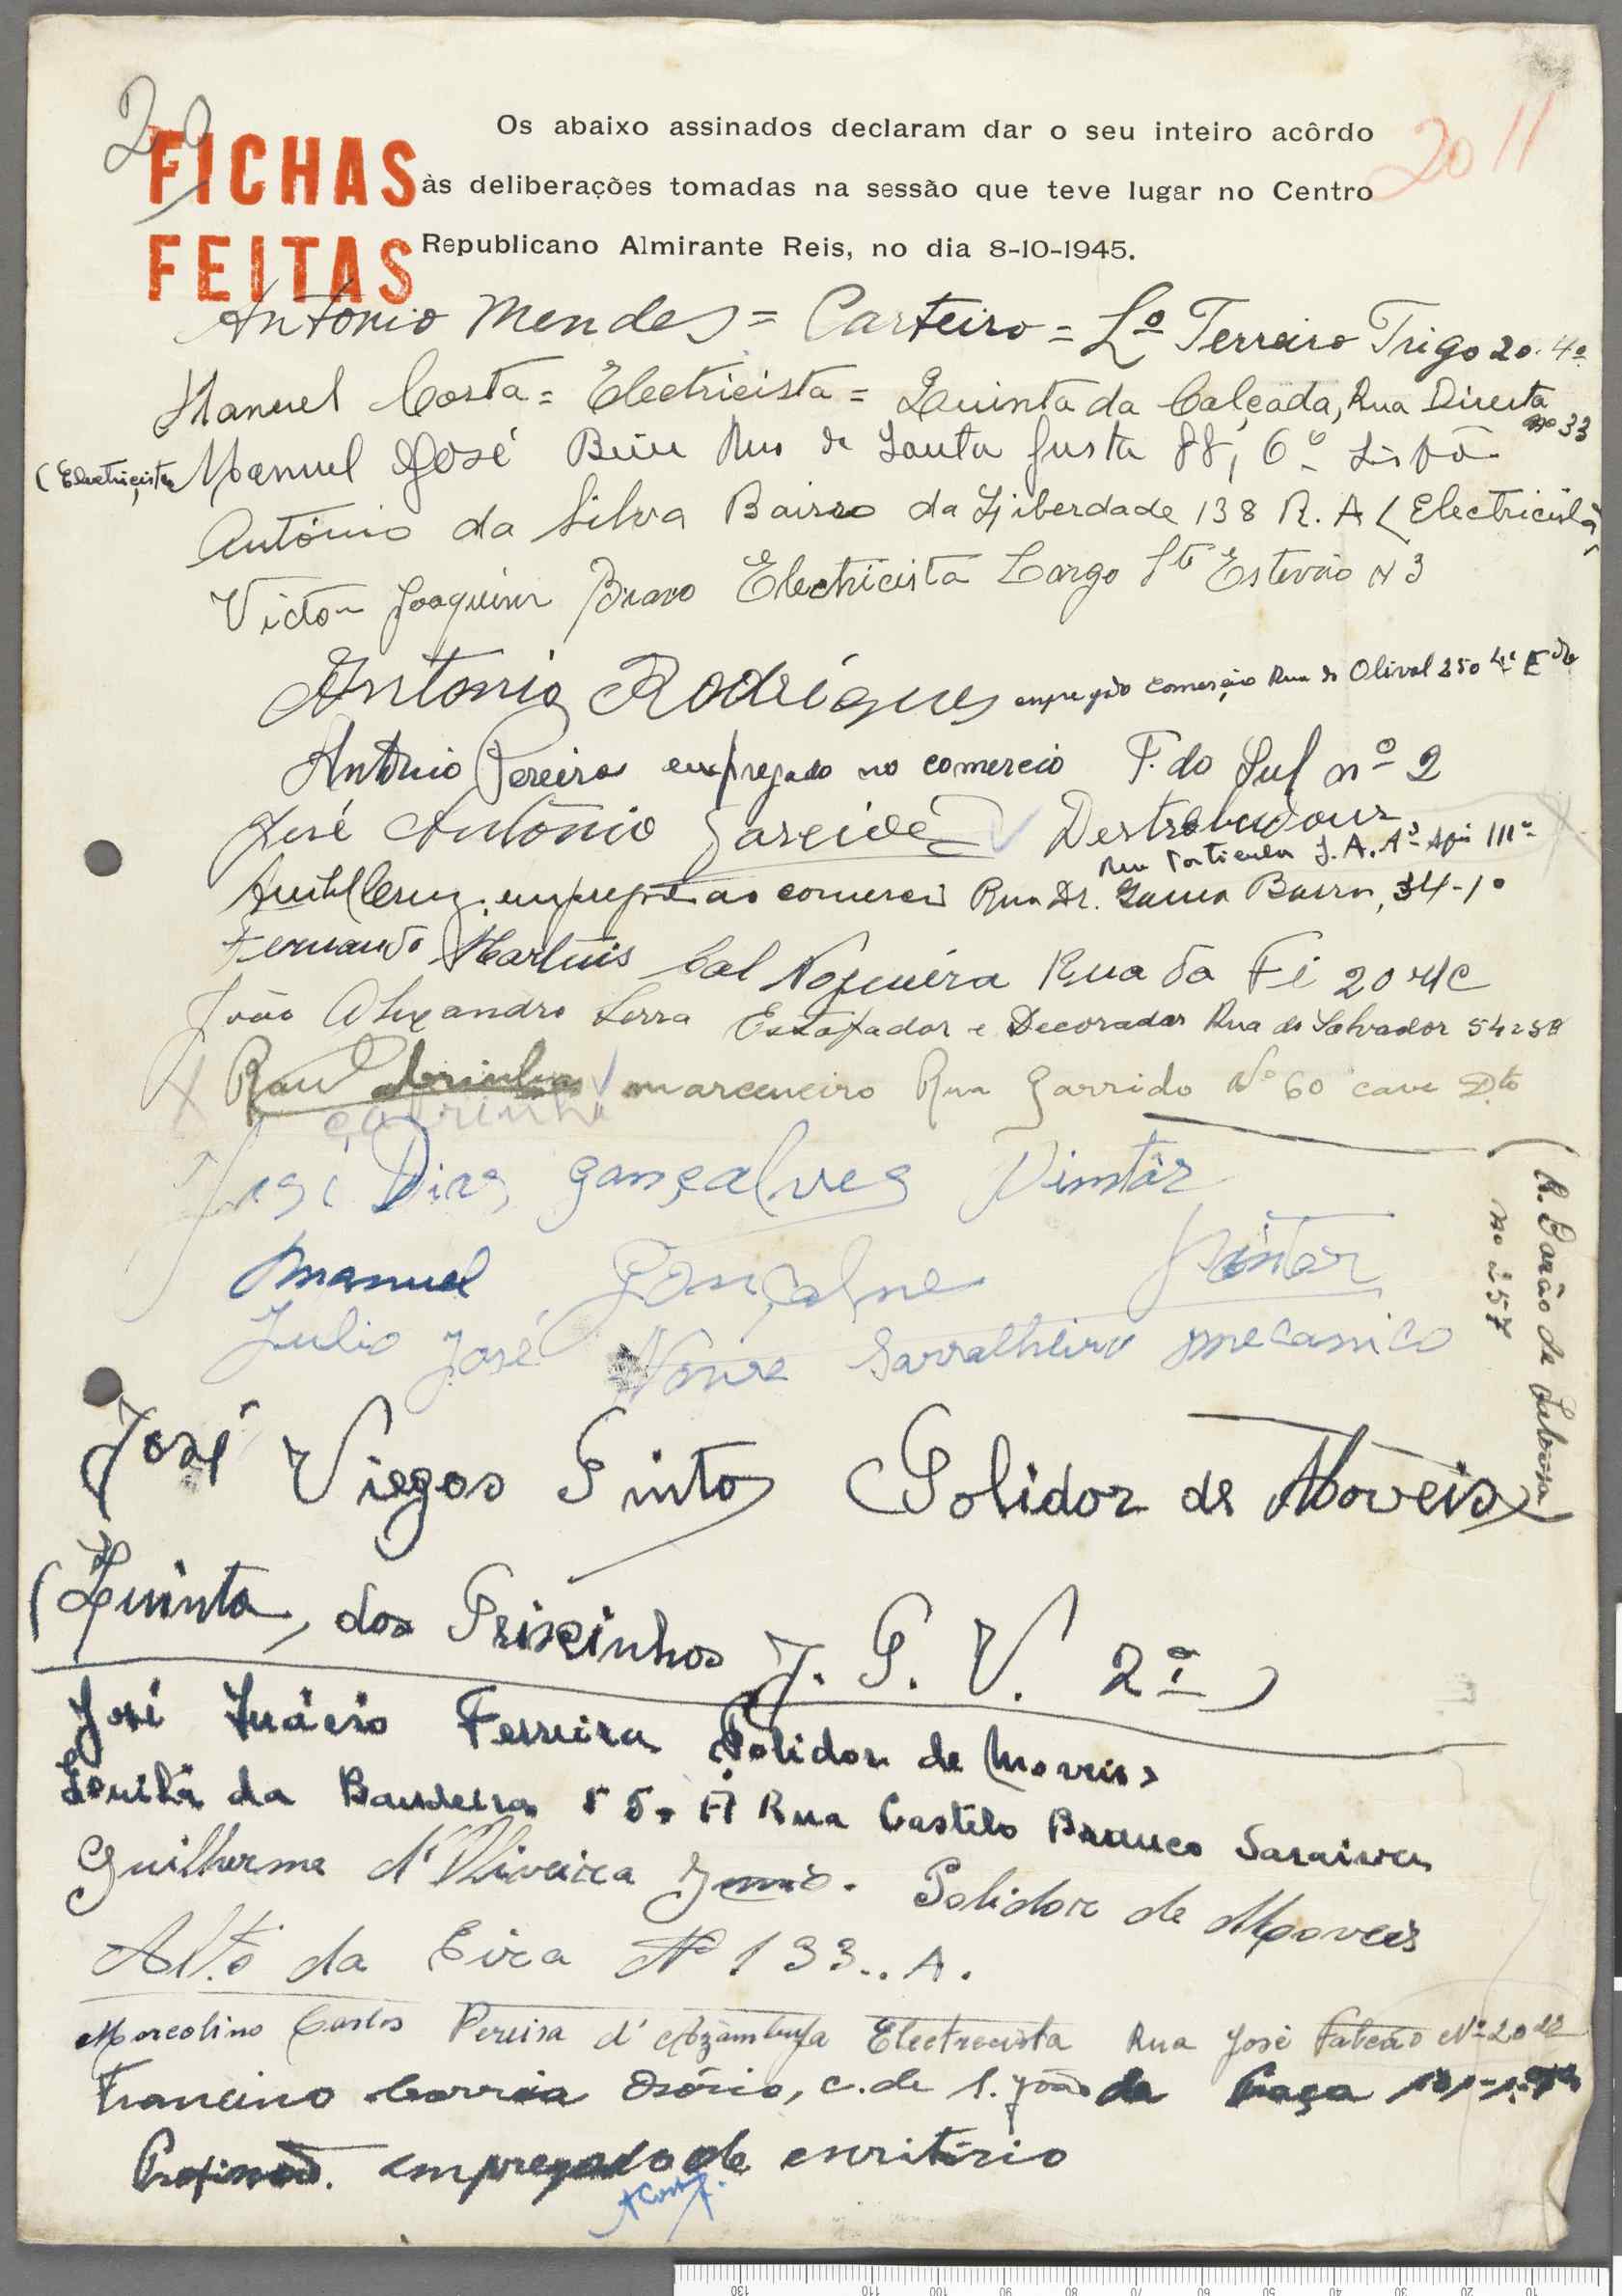 20
2011
FICHAS
FEITAS
Os abaixo assinados declaram dar o seu inteiro acôrdo
às deliberações tomadas na sessão que teve lugar no Centro
Republicano Almirante Reis, no dia 8-10-1945.
António Mendes = Carteiro = Lº Terreiro Trigo 20. 4º
Manuel Costa = Electricista = Quinta da Calçada, Rua Directa nº 33
(Electricista Manuel José Rua de Santa Justa 88, 6º Lisbôa
António da Silva Bairro da Liberdade 138 R. A (Electricista)
Victor Joaquim Bravo Electricista Largo Stº Estevão N 3
António Rodrigues empregado comercio Rua do Olival 250
António Pereira empregado no comercio F. do Sul nº 2
José António
Rua Particular J. A.
empregado no comercio Rua Dr. Gama Barros, 34-1º
Fernando Martins Cal Nogueira Rua da Fé 20 r/c
João Alexandre Serra Estofador e Decorador Rua do Salvador 54
Raul marceneiro Rua Garrido Nº 60 cave Dto
José Dias Gonçalves Pintôr
Manuel Gonçalves Pintor
Julio José Serralheiro mecanico
(R. Barão de
nº 257
José Viegas Pinto Polidor de Moveis
(Quinta dos Peixinhos J. P. V. 2ª)
José Inácio Ferreira Polidor de Moveis
da Bandeira A Rua Castelo Branco Saraiva
Guilherme d'Oliveira Polidor de Moveis
Alto da Eira Nº 133.. A.
Marcolino Carlos Pereira d'Azambuja Electrecista Rua José Falcão Nº 20
Francisco Correia Osório, c. de S. João da Praça
empregado de escritório